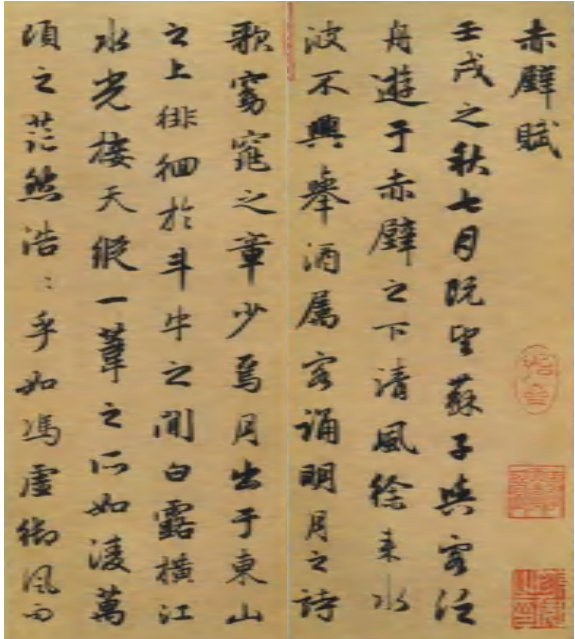 赤壁賦
壬戌之秋七月既望蘇子與客泛
舟遊于赤壁之下清風徐來水
波不興舉酒屬客誦明月之詩
歌窈窕之章少焉月出于東山
之上徘徊於斗牛之間白露橫江
水光接天縱一葦之所如凌萬
頃之茫然浩〻乎如馮虛御風而